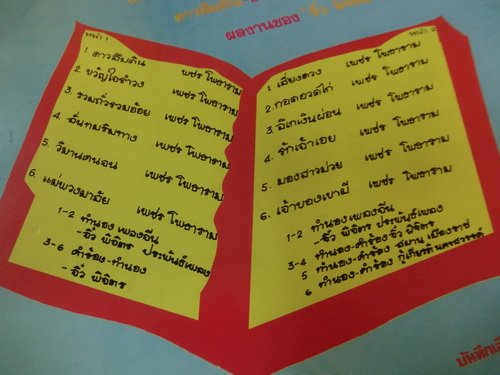 ผลงานของ "จิ๋ว
หน้า 1
1. ดาวลืมดิน เพชร โพธาราม
2. ขวัญใจรำวง เพชร โพธาราม
3. รวมถั่วรวมอ้อย เพชร โพธาราม
4. ลั่นทมริมทาง เพชร โพธาราม
5. วิมานคนจน เพชร โพธาราม
6. แม่พวงมาลัย เพชร โพธาราม
1-2 ทำนองเพลงจีน
-จิ๋ว พิจิตร ประพันธ์เพลง
3-6 คำร้อง-ทำนอง
-จิ๋ว พิจิตร
หน้า 2
1. เสี่ยงดวง เพชร โพธาราม
2. กอดอวดไก่ เพชร โพธาราม
3. ลิเกเงินผ่อน เพชร โพธาราม
4. รักเจ้าเอย เพชร โพธาราม
5. มองสาวม่วย เพชร โพธาราม
6. เจ้าของเขามี เพชร โพธาราม
1-2 ทำนองเพลงจีน
-จิ๋ว พิจิตร ประพันธ์เพลง
3-4 ทำนอง-คำร้อง จิ๋ว พิจิตร
5 ทำนอง-คำร้อง สมาน เมืองราช
6 ทำนอง-คำร้อง กู้เกียรติ นครสวรรค์